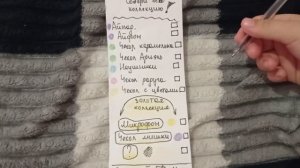 Собери всю
коллекцию
Айпад
Айфон
Чехол керамика
Чехол
Наушники
Чехол радуга
Чехол с цветами
Золотая
коллекция
Микрофон
Чехол мишки
?